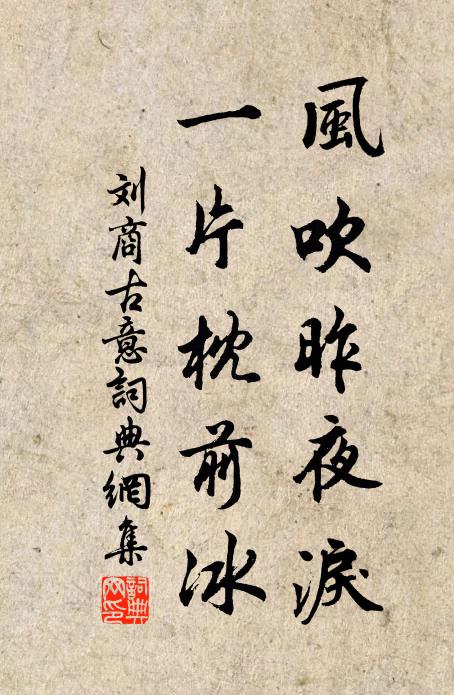 風吹昨夜淚
一片枕前冰
刘商古意詞典網集
詞典网印